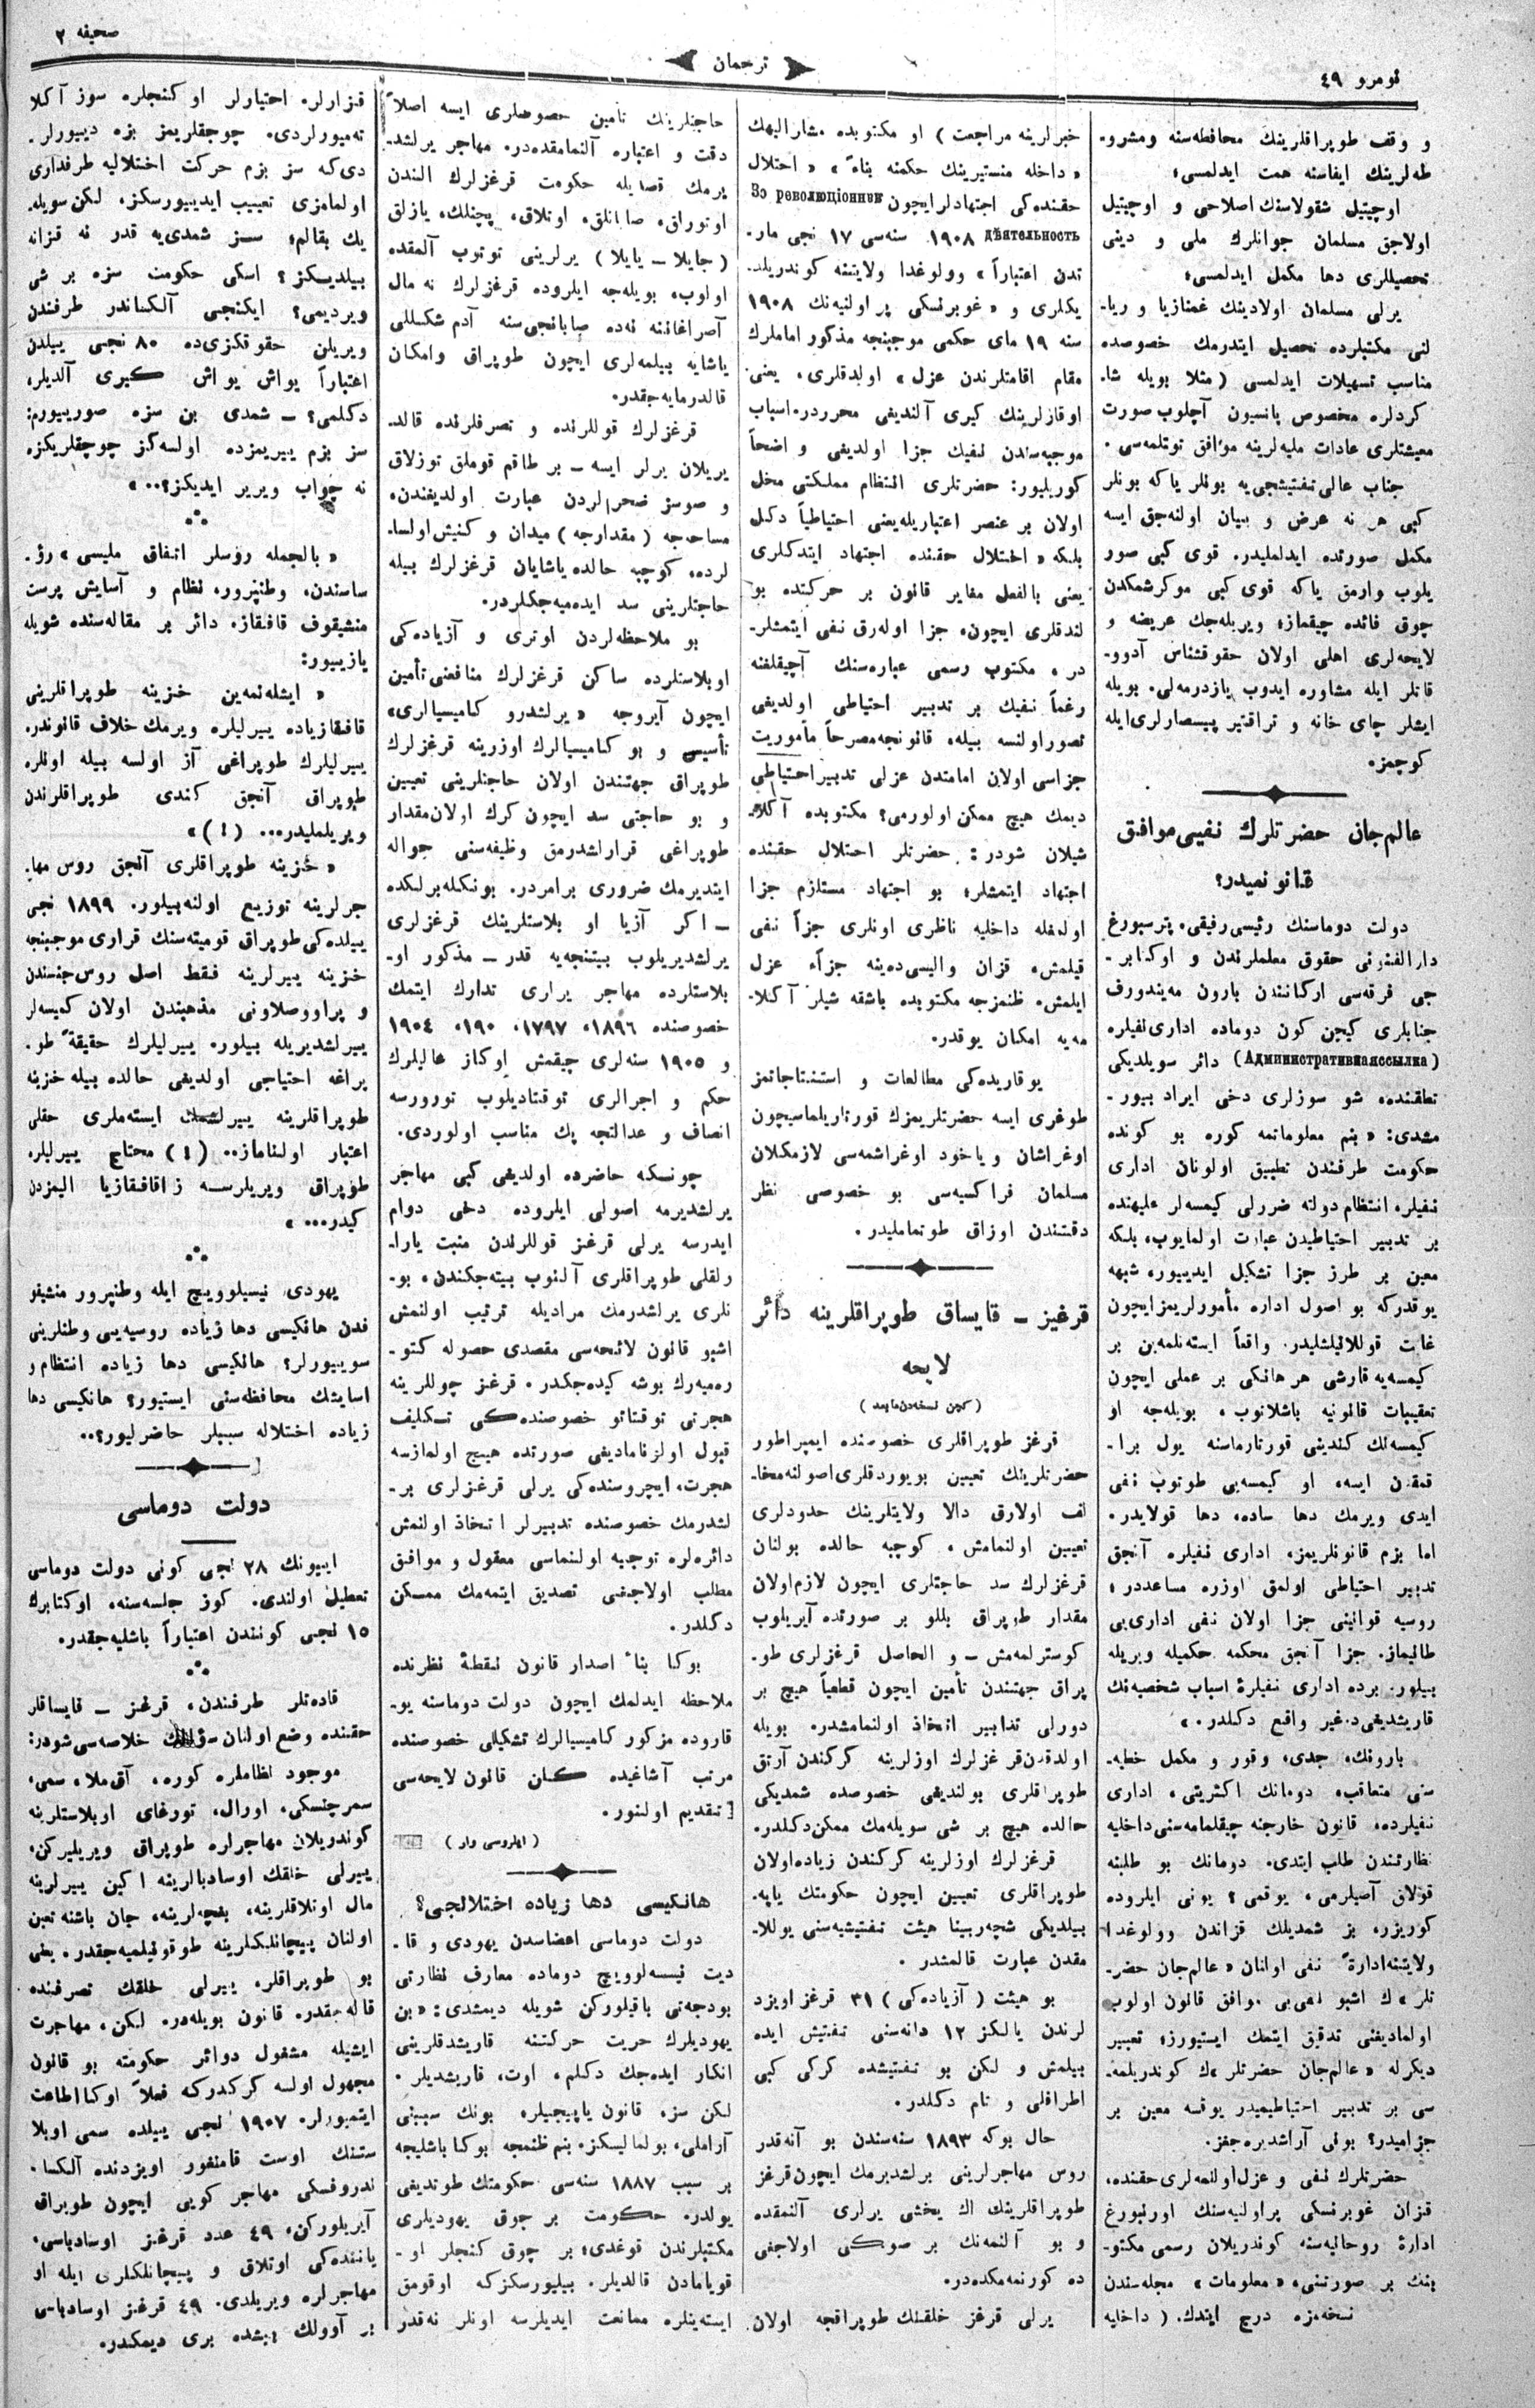 نومرو ٤٩
ترجمان
صحيفه ٢
و وقف طوپراقلرينك محافظه‌سنه ومشرو-
طه‌لرينك ايفاسنه همت ايدلمسى؛
اوچيتيل شقولاسنك اصلاحى و اوچيتيل
اولاجق مسلمان جوانلرك ملى و دينى
تحصيللرى دها مكمل ايدلمسى؛
يرلى مسلمان اولادينك غمنازيا و ريا-
لنى مكتبلرده تحصيل ايتدرمك خصوصده
مناسب تسهيلات ايدلمسى (مثلا بويله شا-
كردلره مخصوص پانسيون آچلوب صورت
معيشتلرى عادات مليه‌لرينه موٴافق توتلمه‌سى.
جناب عالى تفتيشجى‌يه بونلر ياكه بونلر
كبى هر نه عرض و بيان اولنه‌جق ايسه
مكمل صورتده ايدلمليدر. قوى كبى صور
يلوب وارمق ياكه قوى كبى موكرشمكدن
چوق فائده چيقماز؛ ويريله‌جك عريضه و
لايحه‌لرى اهلى اولان حقوقشناس آدوو-
قاتلر ايله مشاوره ايدوب يازدرمه‌لى. بويله
ايشلر چاى خانه و تراقتير پيسارلرى‌ايله
كوچمز.
عالم‌جان حضرتلرك نفيى موافق
قانونميدر؟
دولت دوماسنك رئيسى رفيقى، پترسبورغ
دارالفنونى حقوق معلملرندن و اوكتابر-
جى فرقه‌سى اركانندن بارون مه‌يندورف
جنابلرى كچن كون دوماده ادارى نفيلره
(Административная ссылка) دائر سويلديكى
نطقنده، شو سوزلرى دخى ايراد بيور-
مشدى: « بنم معلوماتمه كوره بو كونده
حكومت طرفندن تطبيق اولونان ادارى
نفيلر، انتظام دولته ضررلى كيمسه‌لر عليهنده
بر تدبير احتياطيدن عبارت اولمايوب، بلكه
معين بر طرز جزا تشكيل ايدييور، شبهه
يوقدركه بو اصول اداره مأمورلريمزايچون
غايت قوللانيشليدر. واقعاً ايسته‌نلمه‌ين بر
كيمسه‌يه قارشى هر هانكى بر عملى ايچون
تعقيبات قانونيه باشلانوب، بويله‌جه او
كيمسه‌نك كندينى قورتارماسنه يول برا-
قمقدن ايسه، او كيمسه‌يى طوتوب نفى
ايدى ويرمك دها ساده، دها قولايدر.
اما بزم قانونلريمز، ادارى نفيلره آنجق
تدبير احتياطى اولمق اوزره مساعددر؛
روسيه قوانينى جزا اولان نفى ادارى‌يى
طانيماز. جزا آنجق محكمه حكميله ويريله
بيلور. برده ادارى نفيلرۀ اسباب شخصيه‌نك
قاريشديغى‌ده غير واقع دكلدر. »
بارونك، جدى، وقور و مكمل خطبه-
سنى متعاقب، دومانك اكثريتى، ادارى
نفيلرده، قانون خارجنه چيقلمامه‌سنى داخليه
نظارتندن طلب ايتدى. دومانك بو طلبنه
قولاق آصيلرمى، يوقمى؟ يونى ايلروده
كوريزر، بز شمديلك قزاندن وولوغدا
ولايتنه‌ادارةً نفى اولنان « عالم‌جان حضر-
تلر » ك اشبو نفى‌يى موافق قانون اولوب
اولماديغنى تدقيق ايتمك ايستيورز؛ تعبير
ديكرله « عالم‌جان حضرتلر » ك كوندريلمه-
سى بر تدبير احتياطيميدر يوقسه معين بر
جزاميدر؟ بونى آراشديره‌جغز.
حضرتلرك نفى و عزل‌اولنمه‌لرى‌حقنده،
قزان غوبرنسكى پراولنيه‌سنك اورنبورغ
ادارۀ روحانيه‌سنه كوندريلان رسمى مكتو-
بنك بر صورتنى، « معلومات » مجله‌سندن
نسخه‌مزه درج ايتدك. (داخليه
خبرلرينه مراجعت) او مكتوبده مشاراليهك
« داخله منستيرينك حكمنه بناءً » « احتلال
حقنده‌كى اجتهادلرايچون За революціонная
дѣятельность ١٩٠٨ سنه‌سى ١٧ نجى مار-
تدن اعتباراً » وولوغدا ولايتنه كوندريلد-
يكلرى و « غوبرنسكى پر اولنيه‌نك ١٩٠٨
سنه ١٩ ماى حكمى موجبنجه مذكور اماملرك
مقام اقامتلرندن عزل » اولدقلرى، يعنى
اوقازلرينك كيرى آلنديغى محرردر. اسباب
موجبه‌سندن نفيك جزا اولديغى و اضحاً
كوريليور: حضرتلرى انتظام مملكتى مخل
اولان بر عنصر اعتباريله‌يعنى احتياطياً دكل
بلكه « اختلال حقنده اجتهاد ايتدكلرى
يعنى بالفعل مغاير قانون بر حركتده بو
لندقلرى ايچون، جزا اوله‌رق نفى ايتمشلر-
در، مكتوب رسمى عباره‌سنك آچيقلغنه
رغماً نفيك بر تدبير احتياطى اولديغى
تصور اولنسه بيله، قانونجه‌مصرحاً مأموريت
جزاسى اولان امامتدن عزلى تدبيراحتياطى
ديمك هيچ ممكن اولورمى؟ مكتوبده آكلا-
شيلان شودر: حضرتلر احتلال حقنده
اجتهاد ايتمشلر؛ بو اجتهاد مستلزم جزا
اولمغله داخليه ناظرى اونلرى جزاً نفى
قيلمش، قزان واليسى‌ده‌ينه جزاًء عزل
ايلمش. ظنمزجه مكتوبده باشقه شيلر آكلا-
مه‌يه امكان يوقدر.
يوقاريده‌كى مطالعات و استنتاجاتمز
طوغرى ايسه حضرتلريمزك قورتاريلماسيچون
اوغراشان وياخود اوغراشمه‌سى لازمكلان
مسلمان فراكسيه‌سى بو خصوصى نظر
دقتندن اوزاق طوتماملیدر.
قرغيز ـ قايساق طوپراقلرينه دائر
لايحه
(كچن نسخه‌دن‌مابعد)
قرغز طوپراقلرى خصوصنده ايمپراطور
حضرتلرينك تعيين بويوردقلرى‌اصولنه‌مخا-
لف اولارق دالا ولايتلرينك حدودلرى
تعيين اولنمامش. كوچبه حالده بولنان
قرغزلرك سد حاجتلرى ايچون لازم‌اولان
مقدار طوپراق بللو بر صورتده آيريلوب
كوسترلمه‌مش ـ و الحاصل قرغزلرى طو-
پراق جهتندن تأمين ايچون قطعياً هيچ بر
دورلى تدابير اتخاذ اولنمامشدر. بويله
اولدقدن‌قرغزلرك اوزلرينه كركندن آرتق
طوپراقلرى بولنديغى خصوصده شمديكى
حالده هيچ بر شى سويله‌مك ممكن‌دكلدر.
قرغزلرك اوزلرينه كركندن زياده‌اولان
طوپراقلرى تعيين ايچون حكومتك ياپه-
بيلديكى شچه‌ربينا هيئت تفتيشيه‌سنى يوللا-
مقدن عبارت قالمشدر.
بو هيئت (آزياده‌كى) ٣١ قرغز اويزد
لرندن يالكز ١٢ دانه‌سنى تفتيش ايده
بيلمش و لكن بو تفتيشده كركى كبى
اطرافلى و تام دكلدر.
حال بوكه ١٨٩٣ سنه‌سندن بو آنه‌قدر
روس مهاجرلرينى يرلشديرمك ايچون قرغز
طوپراقلرينك اك يخشى يرلرى آلنمقده
و بو آلنمه‌نك بر صوكى اولاجغى
ده كورنمه‌مكده‌در.
يرلى قرغز خلقنك طوپراقجه اولان
حاجتلرينك تامين خصوصلرى ايسه اصلاً
دقت و اعتباره آلنمامقده‌در. مهاجر يرلشد-
يرمك قصديله حكومت قرغزلرك الندن
اوتوراق، صانلق، اوتلاق، پچنلك، يازلق
(جايلا ـ يايلا) يرلرينى توتوب آلمقده
اولوب، بويله‌جه ايلروده قرغزلرك نه مال
آصراغاننه نه‌ده صابانجى‌سنه آدم شكللى
ياشايه بيلمه‌لرى ايچون طوپراق وامكان
قالدرمايه‌جقدر.
قرغزلرك قوللرنده و تصرفلرنده قالد-
يريلان يرلر ايسه ـ بر طاقم قوملق توزلاق
و صوسز صحرالردن عبارت اولديغندن،
مساحه‌جه (مقدارجه) ميدان و كنيش‌اولسا-
لرده، كوچبه حالده ياشايان قرغزلرك بيله
حاجتلرينى سد ايده‌ميه‌جكلردر.
بو ملاحظه‌لردن اوترى و آزياده‌كى
اوبلاستلرده ساكن قرغزلرك منافعنى تأمين
ايچون آيروجه « يرلشدرو كاميسيالرى »
تأسيس و بو كاميسيالرك اوزرينه قرغزلرك
طوپراق جهتندن اولان حاجتلرينى تعيين
و بو حاجتى سد ايچون كرك اولان‌مقدار
طوپراغى قراراشدرمق وظيفه‌سنى حواله
ايتديرمك ضرورى برامردر. بونكله‌برلكده
ـ اكر آزيا او بلاستلرينك قرغزلرى
يرلشديريلوب بيتنجه‌يه قدر ـ مذكور او-
بلاستلرده مهاجر يرارى تدارك ايتمك
خصوصنده ١٨٩٦، ١٧٩٧، ١٩٠، ١٩٠٤
و ١٩٠٥ سنه‌لرى چيقمش اوكاز عاليلرك
حكم و اجرالرى توقتاديلوب تورورسه
انصاف و عدالتجه پك مناسب اولوردى.
چونسكه حاضرده اولديغى كبى مهاجر
يرلشديرمه اصولى ايلروده دخى دوام
ايدرسه يرلى قرغز قوللرندن منبت يارا-
رلقلى طوپراقلرى آلنوب بيته‌جكندن، بو-
نلرى يرلشدرمك مراديله ترتيب اولنمش
اشبو قانون لائحه‌سى مقصدى حصوله كتو-
ره‌ميه‌رك بوشه كيده‌جكدر. قرغز چوللرينه
هجرتى توقتاتو خصوصنده‌كى تسكليف
قبول اولزناماديغى صورتده هيچ اولمازسه
هجرت، ايچروسنده‌كى يرلى قرغزلرى ير-
لشدرمك خصوصنده تدبيرلر اتخاذ اولنمش
دائره‌لره توجيه اولنماسى معقول و موافق
مطلب اولاجغنى تصديق ايتمه‌مك ممسكن
دكلدر.
بوكا بناءً اصدار قانون نقطۀ نظرنده
ملاحظه ايدلمك ايچون دولت دوماسنه يو-
قاروده مزكور كاميسيالرك تشكيلى خصوصنده
مرتب آشاغيده كلان قانون لايحه‌سى
تقديم اولنور.
(اهلروسى وار)
هانكيسى دها زياده اختلالجى؟
دولت دوماسى اعضاسدن يهودى و قا-
ديت نيسه‌لوويچ دوماده معارف نظارتى
بودجه‌تى باقيلوركن شويله ديمشدى: « بن
يهوديلرك حريت حركتنه قاريشدقلرينى
انكار ايده‌جك دكلم، اوت، قاريشديلر.
لكن سز، قانون ياپيجيلر، بونك سببنى
آراملى، بولماليسكز. بنم ظنمجه بوكا باشليجه
بر سبب ١٨٨٧ سنه‌سى حكومتك طوتديغى
يولدر. حكومت بر چوق يهوديلرى
مكتبلرندن قوغدى؛ بر چوق كنجلر او-
قويامادن قالديلر. بيليورسكزكه اوقومق
ايسته‌ينلره ممانعت ايديلرسه اونلر نه‌قدر
قزارلر. احتيارلر او كنجلره سوز آكلا
ته‌ميورلردى. چوجقلريمز بزه دييورلر-
دى‌كه سز بزم حركت اختلاليه طرفدارى
اولمامزى تعييب ايدييورسكز، لكن سويله-
يك بقالم؛ سز شمدى‌يه قدر نه قزانه
بيلديكز؟ اسكى حكومت سزه بر شى
ويرديمى؟ ايكنجى آلكساندر طرفندن
ويريلن حقوقكزى‌ده ٨٠ نجى ييلدن
اعتباراً يواش يواش كيرى آلديلر،
دكلمى؟ ـ شمدى بن سزه صورييورم:
سز بزم ييريمزده اولسه‌كز چوجقلريكزه
نه جواب ويرير ايديكز؟.. »
« بالجمله روسلر اتفاق مليسى » رؤ-
ساسندن، وطنپرور، نظام و آسايش پرست
منشيقوف قافقاز، دائر بر مقاله‌سنده شويله
يازييور:
« ايشله‌نمه‌ين خزينه طوپراقلرينى
قافقازياده ييرليلره ويرمك خلاف قانوندر.
ييرليلرك طوپراغى آز اولسه بيله اونلره
طوپراق آنجق كندى طوپراقلرندن
ويريلمليدر... (!) »
« خزينه طوپراقلرى آنجق روس مها-
جرلرينه توزيع اولنه‌بيلور. ١٨٩٩ نجى
ييلده‌كى طوپراق قوميته‌سنك قرارى موجبنجه
خزينه ييرلرينه فقط اصل روس‌جنسندن
و پراووصلاونى مذهبندن اولان كيمسه‌لر
ييرلشديريله بيلور. ييرليلرك حقيقةً طو-
پراغه احتياجى اولديغى حالده بيله خزينه
طوپراقلرينه ييرلشمك ايسته‌ملرى حقلى
اعتبار اولناماز.. (!) محتاج ييرليلره
طوپراق ويريلرسه زاقافقازيا اليمزدن
كيدر... »
يهودى نيسيلوويچ ايله وطنپرور منشيقو
فدن هانكيسى دها زياده روسيه‌يى وطنلرينى
سوييورلر؟ هانكيسى دها زياده انتظام و
اسايشك محافظه‌سنى ايستيور؟ هانكيسى دها
زياده اختلاله سببلر حاضرليور؟..
دولت دوماسى
ايييونك ٢٨ نجى كونى دولت دوماسى
تعطيل اولندى. كوز جلسه‌سنه، اوكتابرك
١٥ نجى كونندن اعتباراً باشليه‌جقدر.
قاده‌تلر طرفندن، قرغز ـ قايساقلر
حقنده وضع اولنان سؤالك خلاصه‌سى شودر:
موجود نظاملره كوره، آق‌ملا، سمى،
سمرچنسكى، اورال، تورغاى اوبلاستلرينه
كوندريلان مهاجرلره طوپراق ويريليركن،
ييرلى خلقك اوسادبالرينه اكين ييرلرينه
مال اوتلاقلرينه، بغچه‌لرينه، جان باشنه تعين
اولنان پيچانلكلرينه طوقونيلميه‌جقدر. يعنى
بو طوپراقلر، ييرلى خلقك تصرفنده
قاله‌جقدر. قانون بويله‌در. ليكن، مهاجرت
ايشيله مشغول دوائر حكومته بو قانون
مجهول اولسه كركدركه فعلاً اوكا اطاعت
ايتميورلر. ١٩٠٧ نجى ييلده سمى اوبلا
ستنك اوست قامنغور اويزدنده آلكسا-
ندروفسكى مهاجر كويى ايچون طوپراق
آيريلوركن، ٤٩ عدد قرغز اوسادباسى،
ياننده‌كى اوتلاق و پيچانلكلرى ايله او
مهاجرلره ويريلدى. ٤٩ قرغز اوسادباسى
بر آوولك بشده برى ديمكدر.